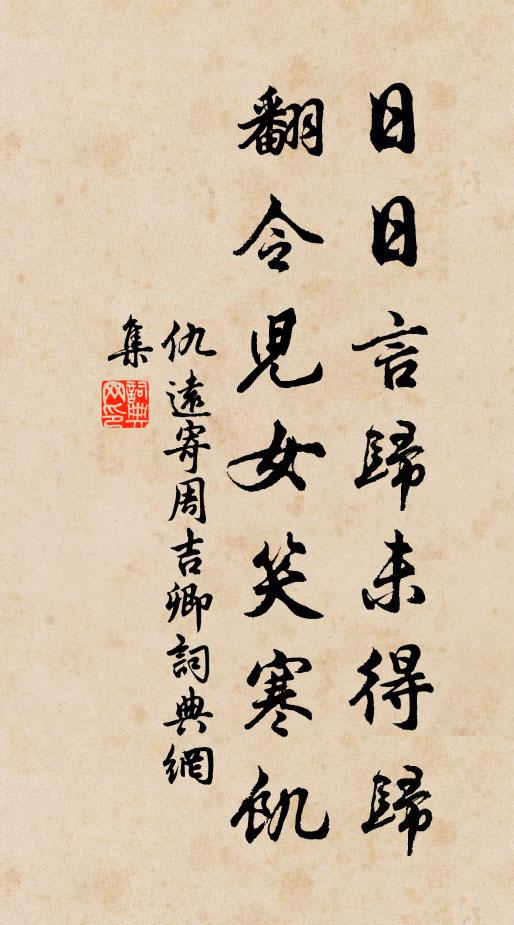 日日言歸未得歸
翻令兒女笑寒飢
仇遠寄周吉卿詞典網
集
詞典網印